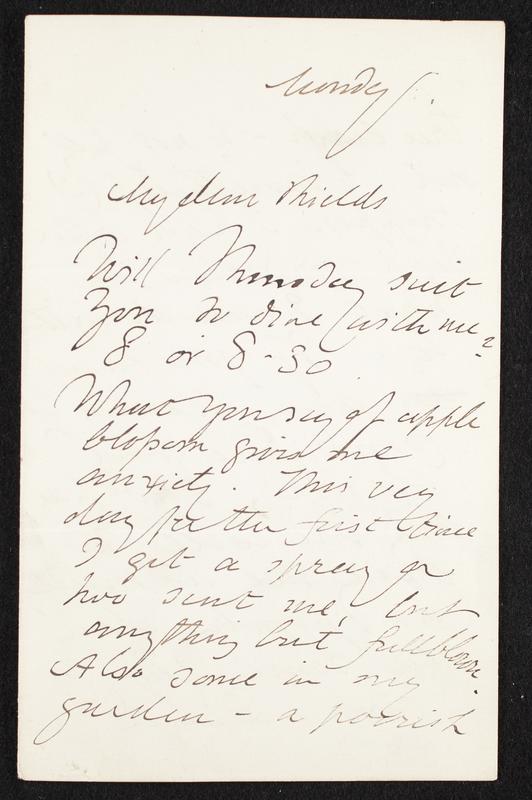 Monday.
My dear Shields
Will Thursday suit
you to dine with me?
8 or 8-30
What you say of apple
blossom gives me
anxiety. This very
day for the first time
I get a spray or
two sent me, but
anything but fullblown.
Also some in my
garden – a poorish